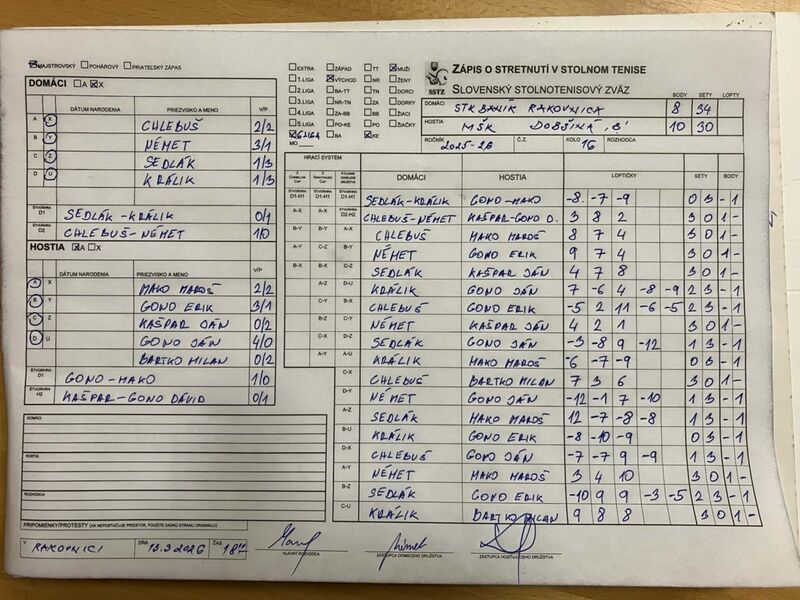 MAJSTROVSKÝ POHÁROVÝ PRIATEĽSKÝ ZÁPAS
DOMÁCI A X
DÁTUM NARODENIA PRIEZVISKO A MENO V/P
A X CHLEBUŠ 2/2
B Y NÉMET 3/1
C Z SEDLÁK 1/3
D U KRÁLIK 1/3
ŠTVORHRA D1 SEDLÁK-KRÁLIK 0/1
ŠTVORHRA D2 CHLEBUŠ-NÉMET 1/0
HOSTIA A X
DÁTUM NARODENIA PRIEZVISKO A MENO V/P
A X MAKO MAROŠ 2/2
B Y GONO ERIK 3/1
C Z KAŠPAR JÁN 0/2
D U GONO JÁN 4/0
BARTKO MILAN 0/2
ŠTVORHRA D1 GONO-MAKO 1/0
ŠTVORHRA H2 KAŠPAR-GONO DÁVID 0/1
DOMÁCI
HOSTIA
ROZHODCA
PRIPOMIENKY/PROTESTY (AK NEPOSTAČUJE PRIESTOR, POUŽITE ZADNÚ STRANU ORIGINÁLU)
V RAKOVNICI DŇA 13.3.2026 ČAS
HLAVNÝ ROZHODCA
ZÁSTUPCA DOMÁCEHO DRUŽSTVA
ZÁSTUPCA HOSŤUJÚCEHO DRUŽSTVA
EXTRA ZÁPAD TT MUŽI
1.LIGA VÝCHOD NR ŽENY
2.LIGA BA-TT TN DORCI
3.LIGA NR-TN ZA DORKY
4.LIGA ZA-BB BB ŽIACI
5.LIGA PO-KE PO ŽIAČKY
6.LIGA BA KE
MO
SSTZ
ZÁPIS O STRETNUTÍ V STOLNOM TENISE
SLOVENSKÝ STOLNOTENISOVÝ ZVÄZ
BODY SETY LOPTY
DOMÁCI STK BANÍK RAKOVNICA 8 34
HOSTIA MŠK DOBŠINÁ "B" 10 30
ROČNÍK 2025-26 Č.Z. KOLO 16 ROZHODCA
HRACÍ SYSTÉM
DOMÁCI HOSTIA LOPTIČKY SETY BODY
ŠTVORHRA D1-H1 ŠTVORHRA D1-H1 ŠTVORHRA D1-H1 SEDLÁK-KRÁLIK GONO-MAKO -8 -7 -9 0 3 - 1
A-X A-X ŠTVORHRA D2-H2 CHLEBUŠ-NÉMET KAŠPAR-GONO D. 3 8 2 3 0 1 -
B-Y B-Y A-X CHLEBUŠ MAKO MAROŠ 8 7 4 3 0 1 -
A-Y C-Z B-Y NÉMET GONO ERIK 9 7 4 3 0 1 -
B-X B-X C-Z SEDLÁK KAŠPAR JÁN 4 7 8 3 0 1 -
A-Z D-U KRÁLIK GONO JÁN 7 -6 4 -8 -9 2 3 - 1
C-Y B-X CHLEBUŠ GONO ERIK -5 2 11 -6 -5 2 3 - 1
B-Z C-Y NÉMET KAŠPAR JÁN 4 2 1 3 0 1 -
C-X D-Z SEDLÁK GONO JÁN -3 -8 9 -12 1 3 - 1
A-Y A-U KRÁLIK MAKO MAROŠ -6 -7 -9 0 3 - 1
C-X CHLEBUŠ BARTKO MILAN 7 3 6 3 0 1 -
D-Y NÉMET GONO JÁN -12 -1 7 -10 1 3 - 1
A-Z SEDLÁK MAKO MAROŠ 12 -7 -8 -8 1 3 - 1
B-U KRÁLIK GONO ERIK -8 -10 -9 0 3 - 1
D-X CHLEBUŠ GONO JÁN -7 -7 9 -9 1 3 - 1
A-Y NÉMET MAKO MAROŠ 3 4 10 3 0 1 -
B-Z SEDLÁK GONO ERIK -10 9 9 -3 -5 2 3 - 1
C-U KRÁLIK BARTKO MILAN 9 8 8 3 0 1 -